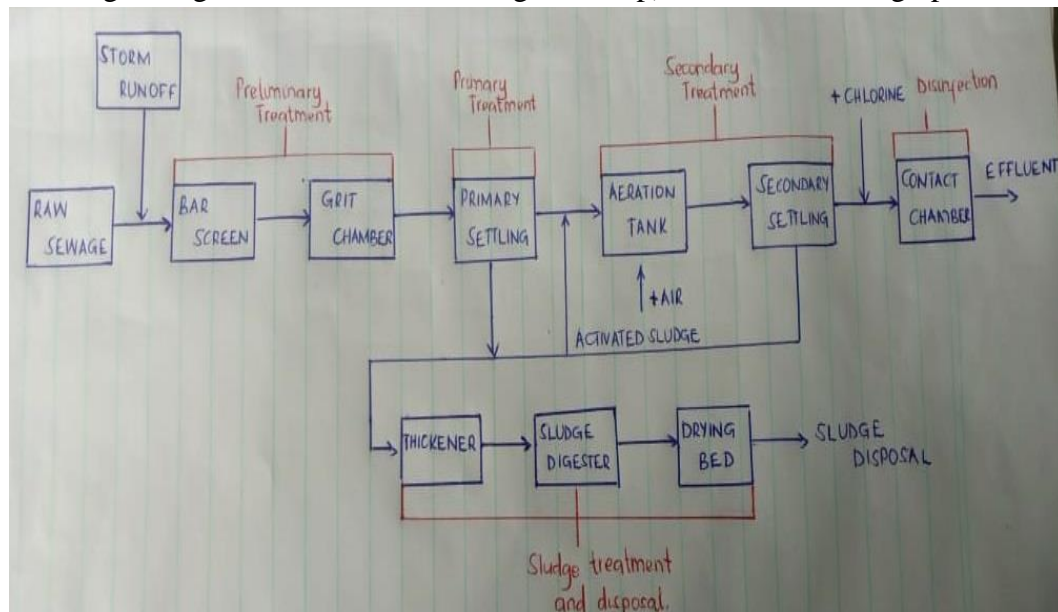 STORM
RUNOFF
Preliminary
Treatment
Primary
Treatment
Secondary
Treatment
+ CHLORINE
Disinfection
RAW
SEWAGE
BAR
SCREEN
GRIT
CHAMBER
PRIMARY
SETTLING
AERATION
TANK
SECONDARY
SETTLING
CONTACT
CHAMBER
EFFLUENT
+AIR
ACTIVATED SLUDGE
THICKENER
SLUDGE
DIGESTER
DRYING
BED
SLUDGE
DISPOSAL
Sludge treatment
and disposal.